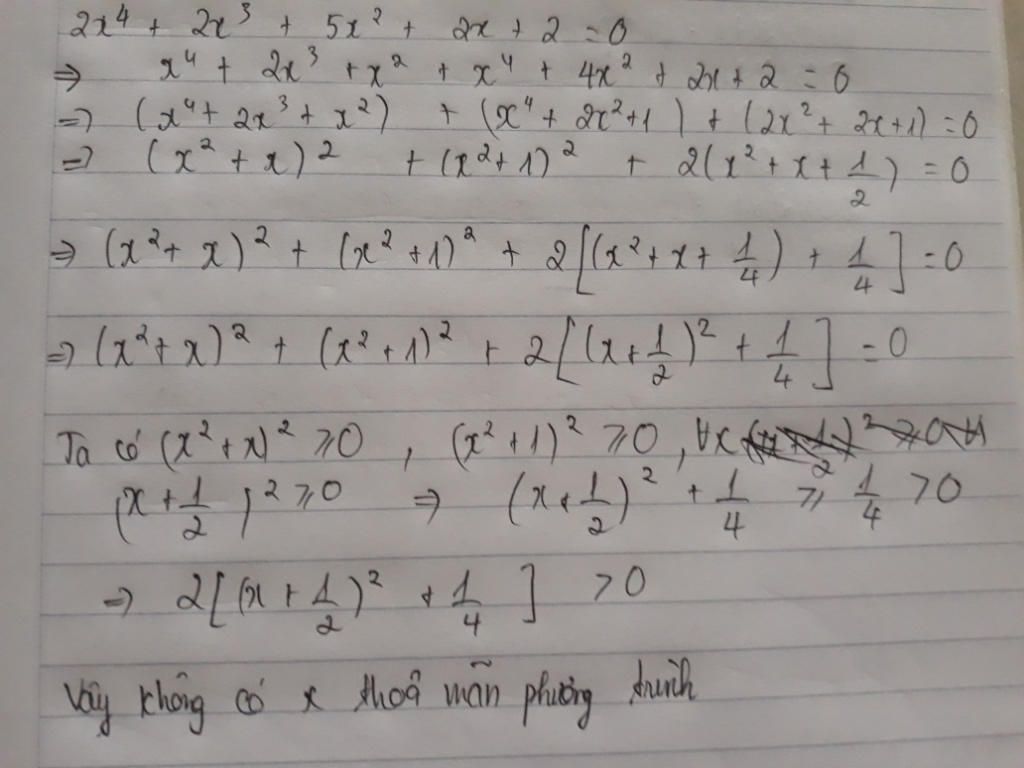 2x⁴ + 2x³ + 5x² + 2x + 2 = 0
⇒ x⁴ + 2x³ + x² + x⁴ + 4x² + 2x + 2 = 0
⇒ (x⁴ + 2x³ + x²) + (x⁴ + 2x² + 1) + (2x² + 2x + 1) = 0
⇒ (x² + x)² + (x² + 1)² + 2(x² + x + 1/2) = 0
⇒ (x² + x)² + (x² + 1)² + 2[(x² + x + 1/4) + 1/4] = 0
⇒ (x² + x)² + (x² + 1)² + 2[(x + 1/2)² + 1/4] = 0
Ta có (x² + x)² ⩾ 0 , (x² + 1)² ⩾ 0 , ∀x
(x + 1/2)² ⩾ 0 ⇒ (x + 1/2)² + 1/4 ⩾ 1/4 > 0
⇒ 2[(x + 1/2)² + 1/4] > 0
Vậy không có x thoả mãn phương trình